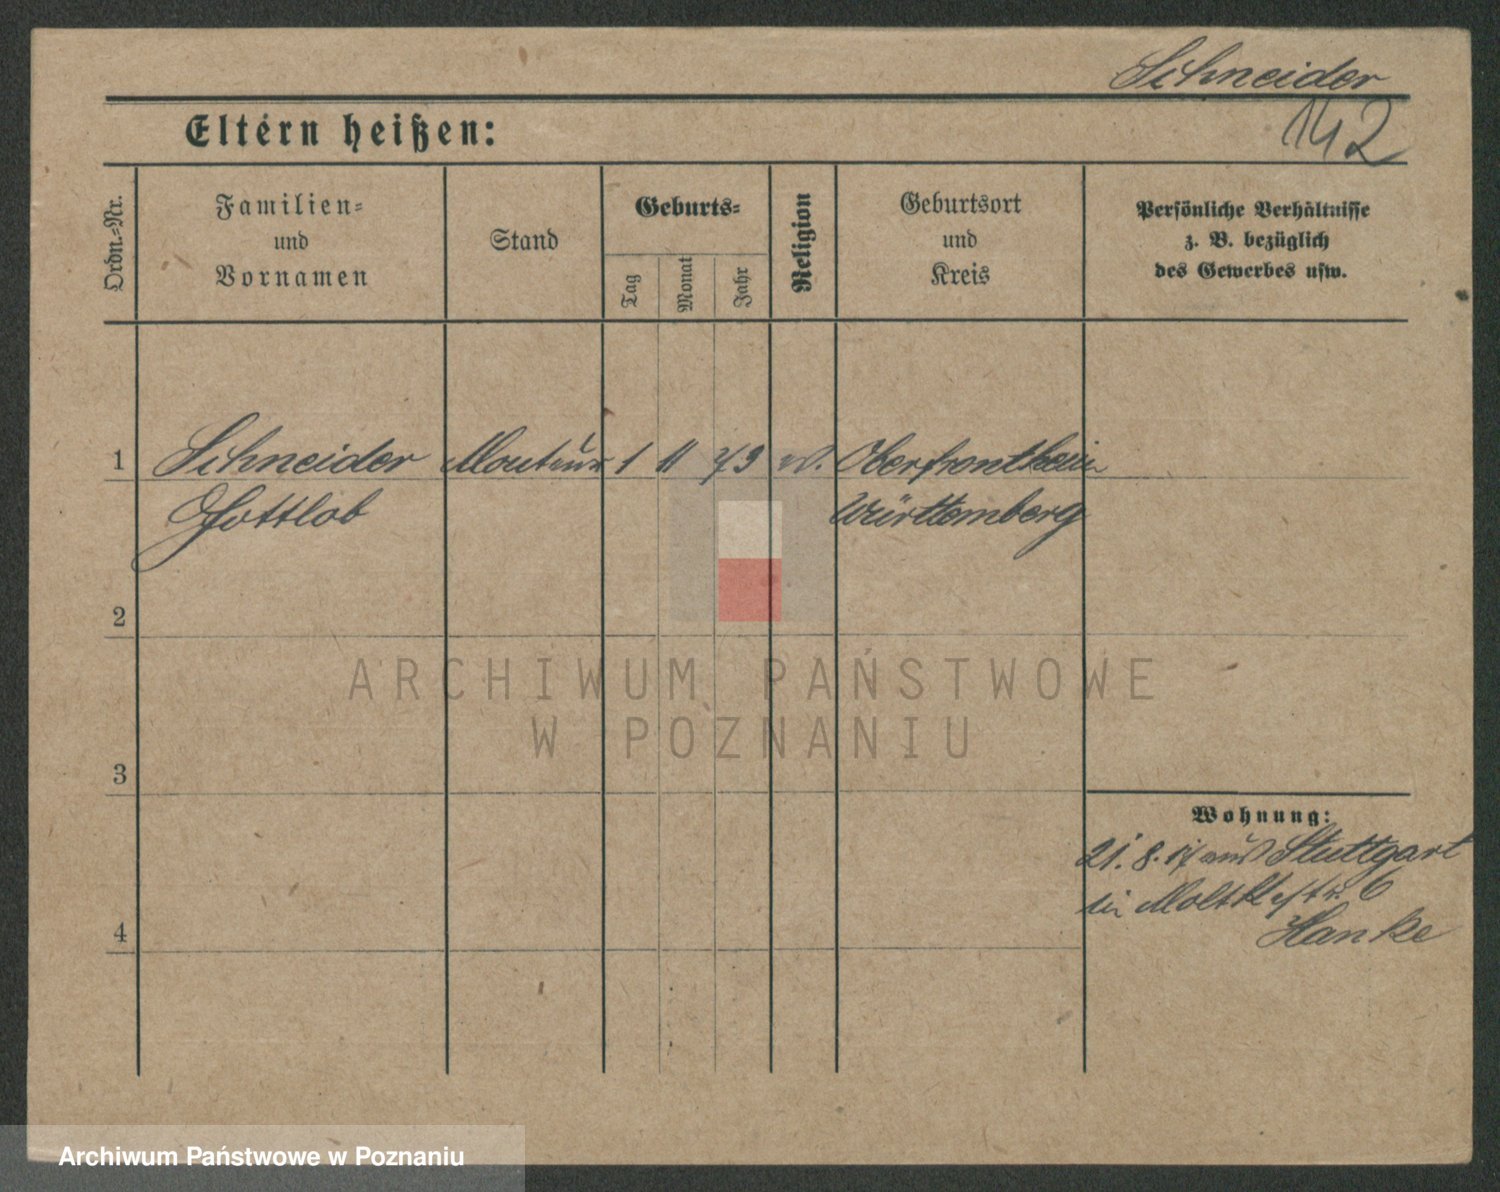 Schneider
142
Eltern heißen:
Ordn.-Nr.
Familien-
und
Vornamen
Stand
Geburts-
Tag
Monat
Jahr
Religion
Geburtsort
und
Kreis
Persönliche Verhältnisse
z. B. bezüglich
des Gewerbes usw.
1 Schneider Monteur 1 11 79 ev. Oberfrontheim
Gottlob Württemberg
2
ARCHIWUM PAŃSTWOWE
W POZNANIU
3
Wohnung:
21. 8. 17 aus Stuttgart
Moltkestr. 6
4
Hanke
Archiwum Państwowe w Poznaniu